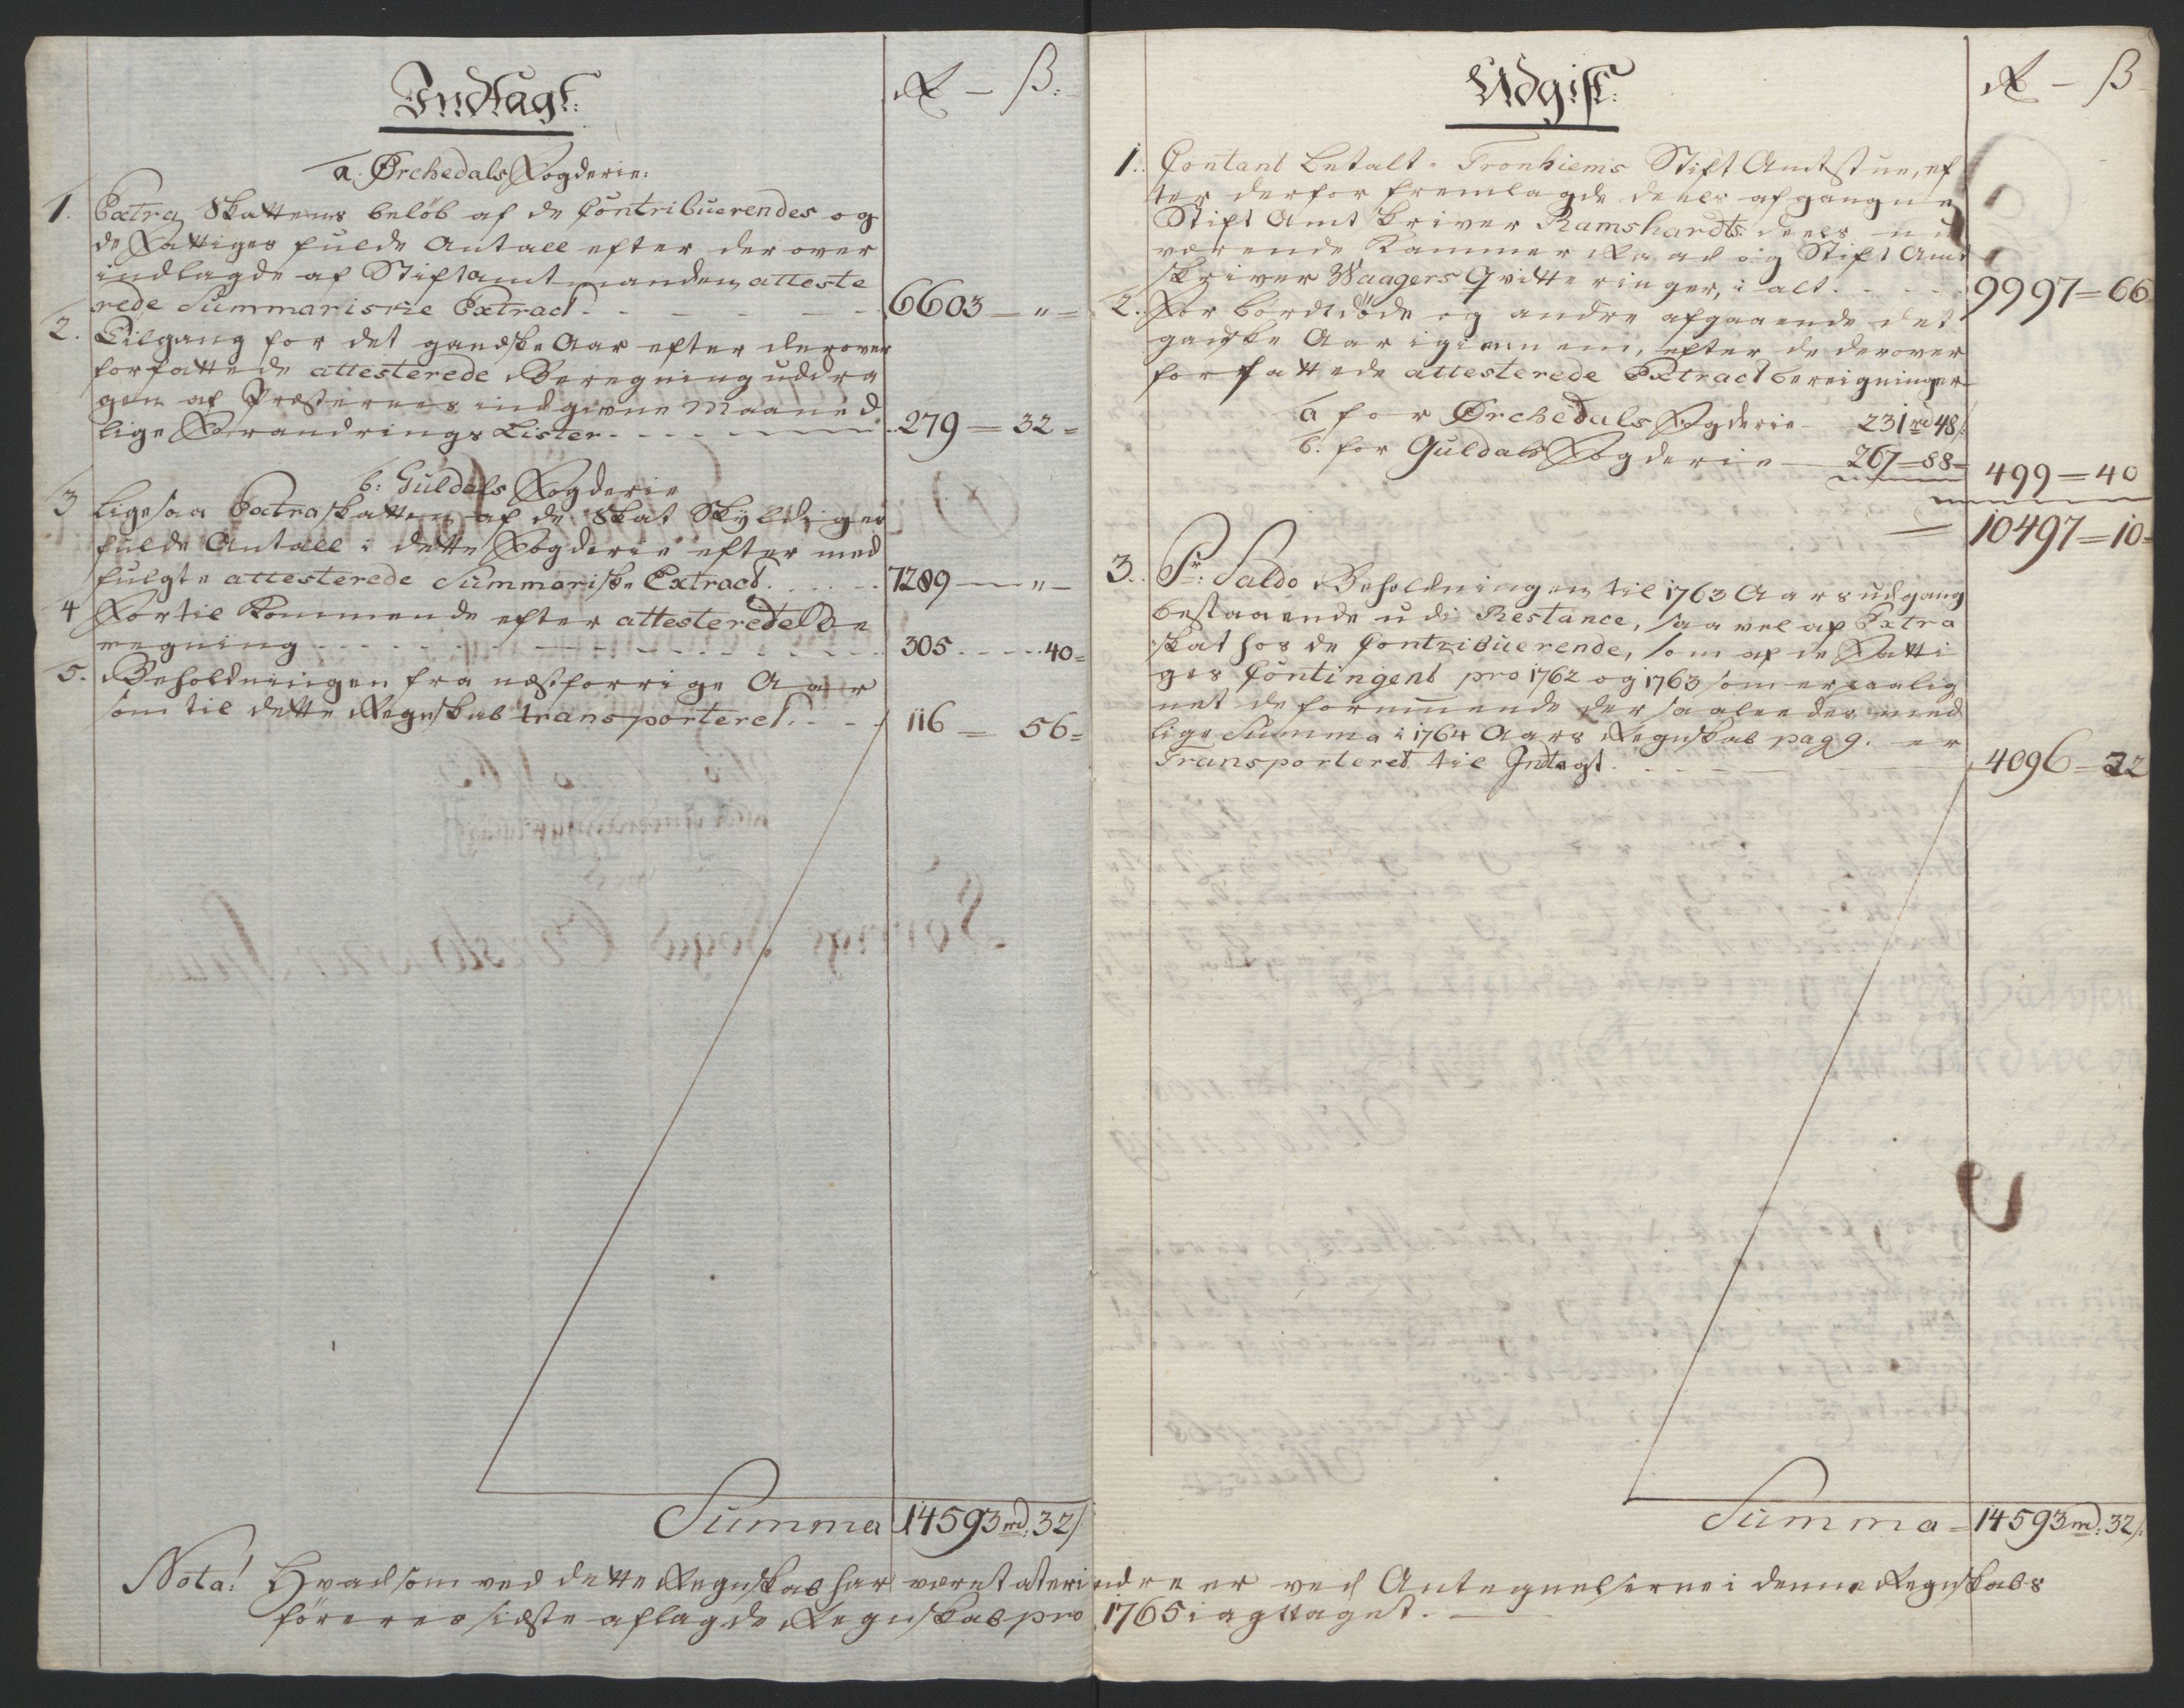 Indtægt:
Rd – ß:
a. Ørchedals Fogderie:
1. Extra Skattens beløb af de Contribuerendes og
de Fattiges fulde Antall efter der over
indlagde af Stiftamtmanden atteste
rede Summariske Extract 6603 – „ –
2. Tilgang for det gandske Aar efter derover
forfattede attesterede Beregning uddra
gen af Præsternes indgivne Maaned
lige Forandrings Lister 279 = 32 =
b: Guldals Fogderie
3 Ligesaa Extraskatten af de Skat Skyldiges
fulde Antall i dette Fogderie efter med
fulgte attesterede Summariske Extract 7289 – „ –
4 For til Kommende efter attesterede Be
regning 305 40 =
5. Beholdningen fra næstforrige Aar
som til dette Regnskab transporteret 116 = 56 =
Summa 14593 rd: 32 ß
Udgift:
Rd – ß
1. Contant betalt Tronhiems Stift Amtstue, ef
ter derfor fremlagde deels afgangne
Stift Amt Skriver Ramshardts deels nu
værende Kammer Raad og Stift Amt
skriver Waagers Qvitteringer, i alt 9997 = 66
2. For bortdöde og andre afgaaende det
gandske Aar igiennem, efter de derover
forfattede attesterede Extract bereigninger
a for Ørchedals Fogderie 231 rd 48 ß
b. for Guldals Fogderie 267 = 88 = 499 = 40
10497 = 10 =
3. Pr: Saldo Beholdningen til 1763 Aars udgang
bestaaende udi Restance, saavel af Extra
skat hos de Contribuerende, som af de Fatti
ges Contingent pro 1762 og 1763 som er paalig
net de formuende der saaledes med
lige Summa i 1764 Aars Regnskab pag 9. er
Transporteret til Indtegt 4096 = 22
Summa = 14593 rd: 32 ß:
Nota! Hvad som ved dette Regnskab har været at erindre er ved Antegnelserne i denne Regnskabs
föreres sidste aflagde Regnskab pro 1765 iagttaget.